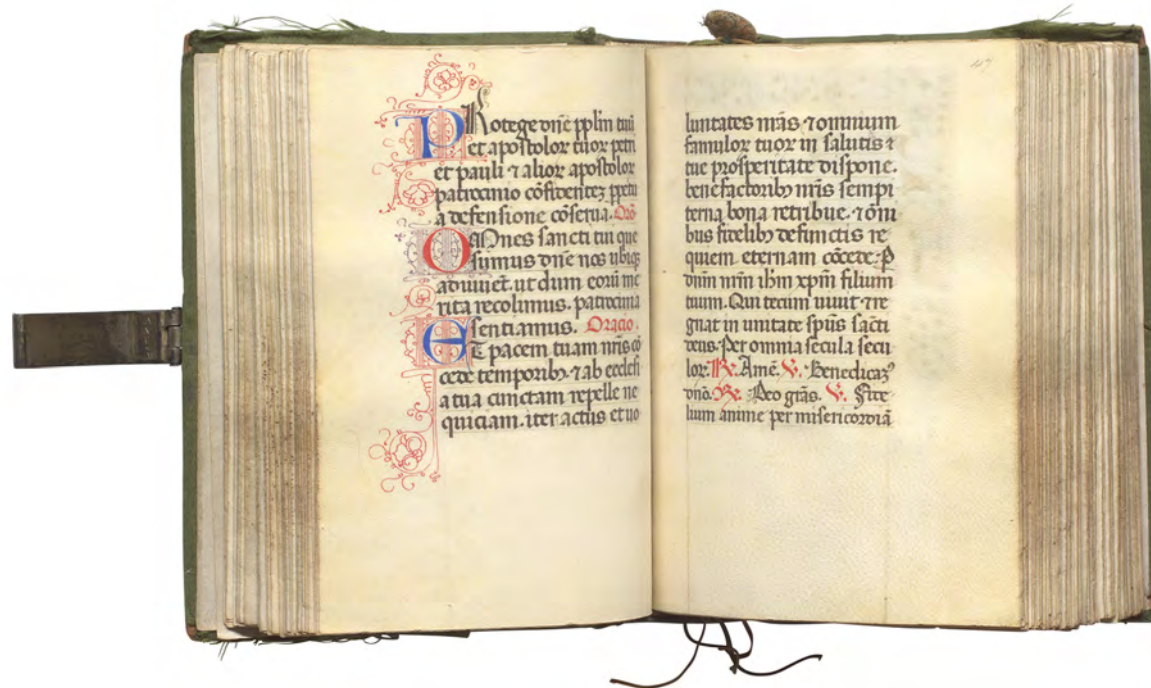 PRotege dñe pplm tuũ
et apostolor tuor petri
et pauli ⁊ alior apostolor
patrocinio cõfidentez ppetu
a defensione cõserua. Orõ
OMnes sancti tui que
sumus dñe nos ubiqz
adiuuẽt. ut dum eorũ me
rita recolimus. patrocinia
sentiamus. Oracio.
ET pacem tuam nris cõ
cede temporibz ⁊ ab ecclesi
a tua cunctam repelle ne
quiciam. iter actus et uo
47
luntates nr̃as ⁊ omnium
famulor tuor in salutis
tue prosperitate dispone.
benefactoribz nr̃is sempi
terna bona retribue. ⁊ õm
bus fidelibz defunctis re
quiem eternam cõcede. P
dñm nrm ihm xpm filium
tuum. Qui tecum uiuit ⁊ re
gnat in unitate spũs sãcti
deus. Per omnia secula secu
lor. R. Amẽ. V. Benedicaz
dño. R. Deo grãs. V. Fide
lium anime per misericordiã